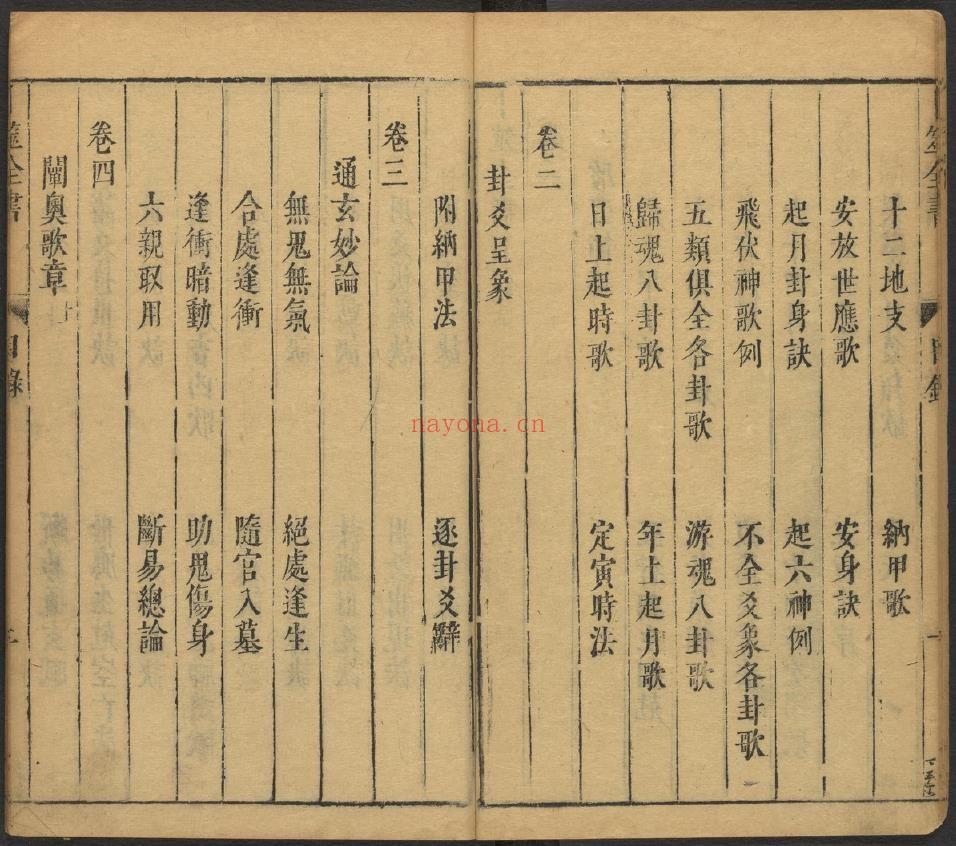 筮全書
目錄
一
十二地支 納甲歌
安放世應歌 安身訣
起月卦身訣 起六神例
飛伏神歌例 不全爻象各卦歌
五類俱全各卦歌 游魂八卦歌
歸魂八卦歌 年上起月歌
日上起時歌 定寅時法
卷二
卦爻呈象
附納甲法 逐卦爻辭
卷三
通玄妙論
無鬼無氣 絕處逢生
合處逢衝 隨官入墓
逢衝暗動 助鬼傷身
六親取用 斷易總論
卷四
闡奧歌章
筮全書
目錄
nayona.cn